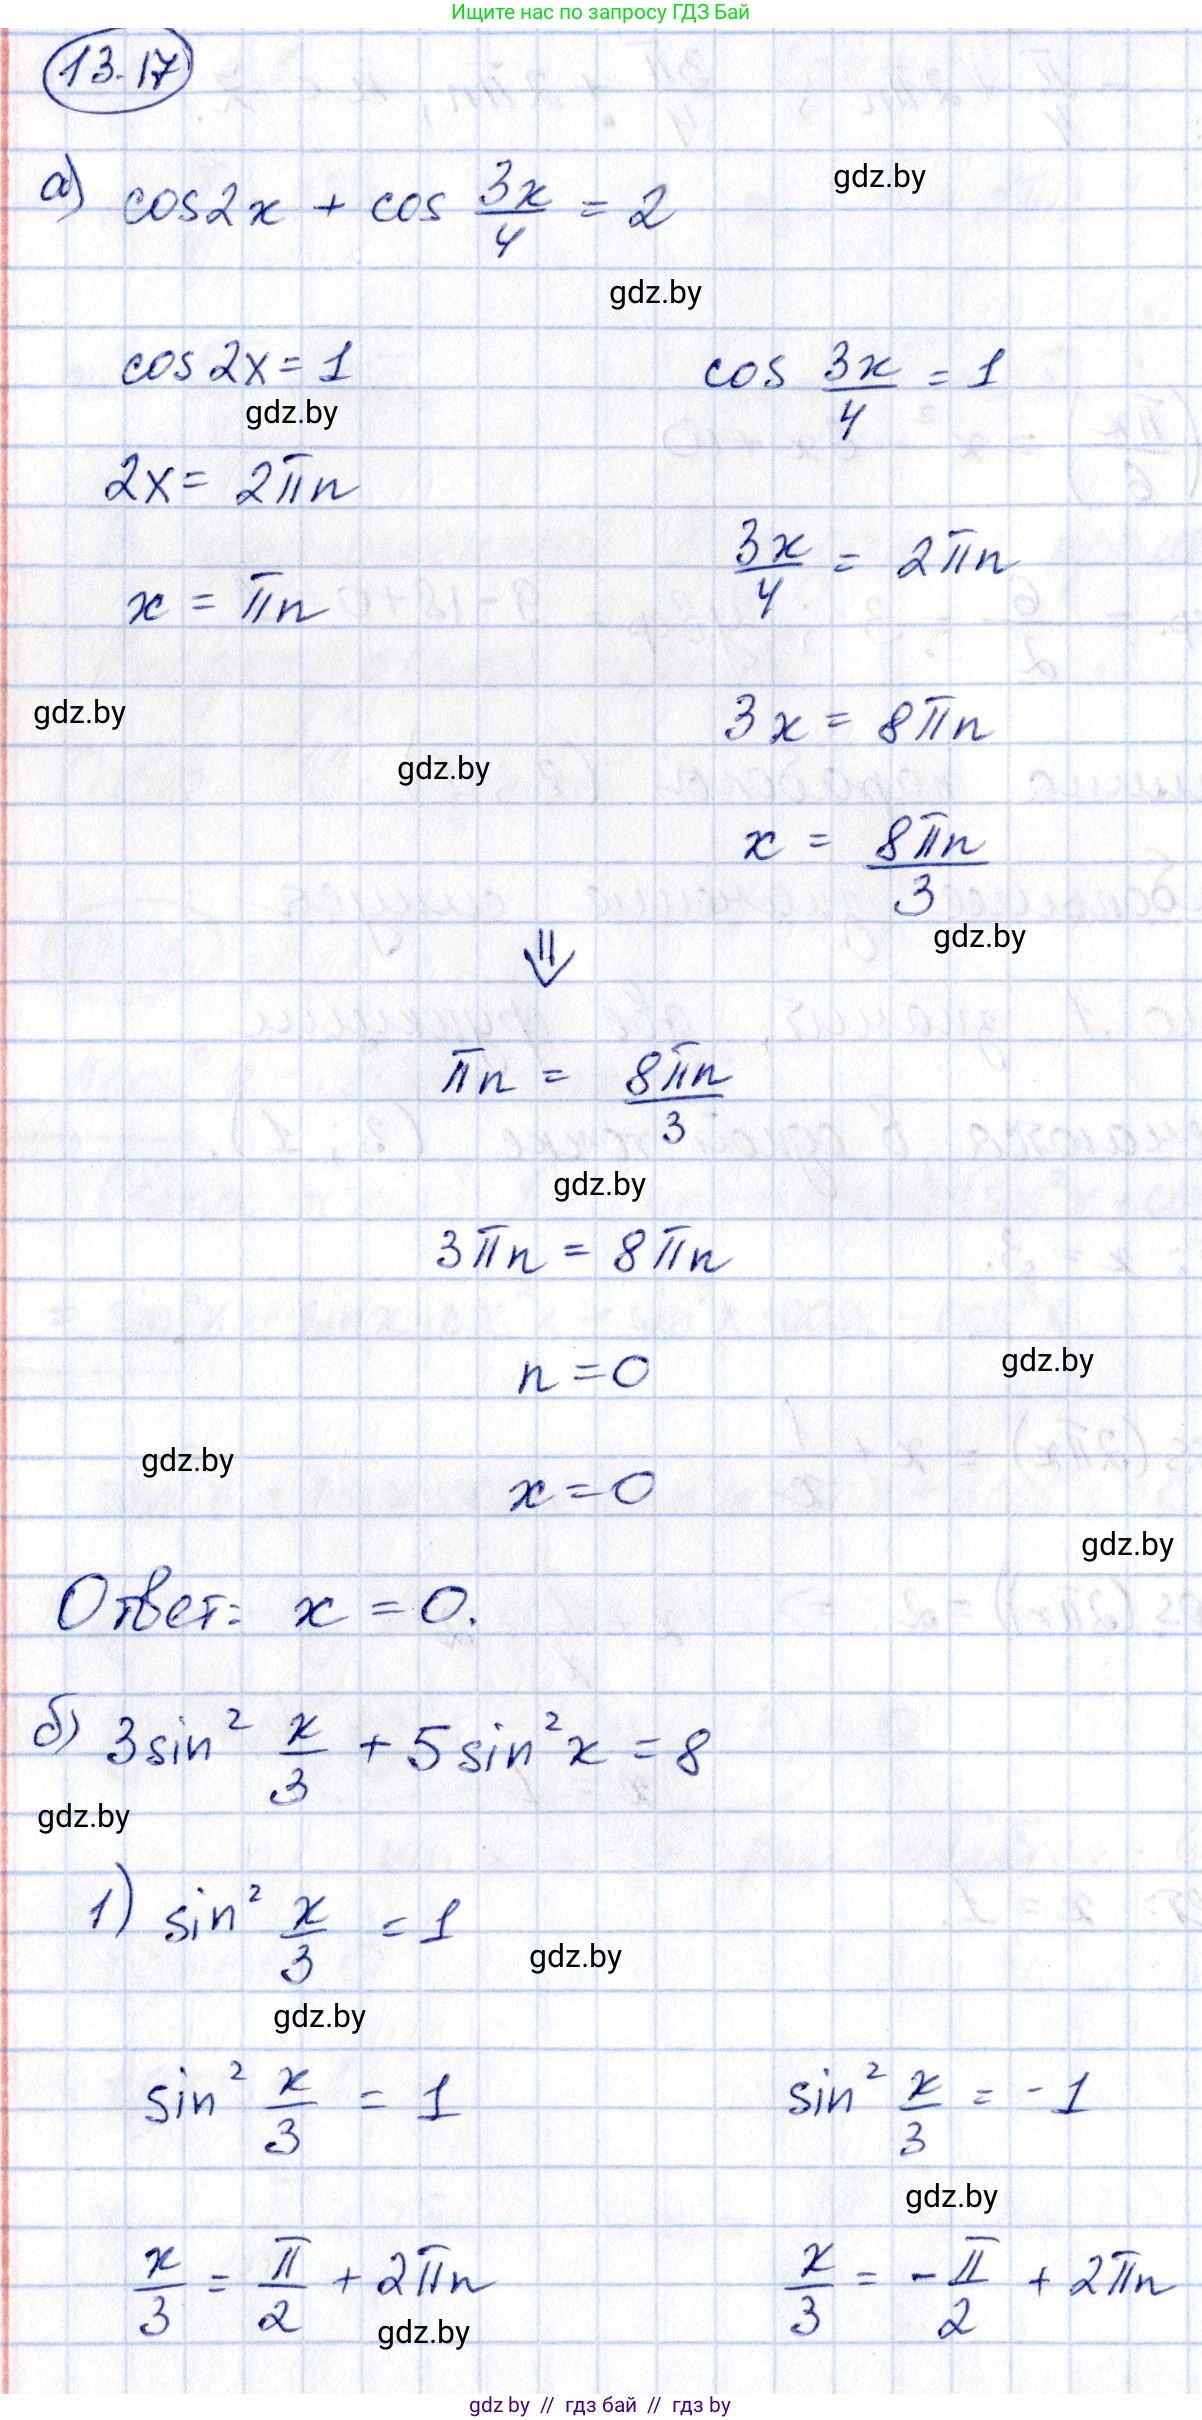 Ищите нас по запросу ГДЗ Бай
13.17
а) cos2x + cos 3x/4 = 2
gdz.by
gdz.by
cos 2x = 1     cos 3x/4 = 1
gdz.by
2x = 2πn     3x/4 = 2πn
x = πn
gdz.by     3x = 8πn
gdz.by
x = 8πn/3
gdz.by
⇓
πn = 8πn/3
gdz.by
3πn = 8πn
n = 0
gdz.by
gdz.by
x = 0
gdz.by
Ответ: x = 0.
б) 3sin² x/3 + 5sin²x = 8
gdz.by
1) sin² x/3 = 1
gdz.by
gdz.by
sin² x/3 = 1     sin² x/3 = -1
gdz.by
x/3 = π/2 + 2πn     x/3 = -π/2 + 2πn
gdz.by
gdz by // гдз бай // гдз by